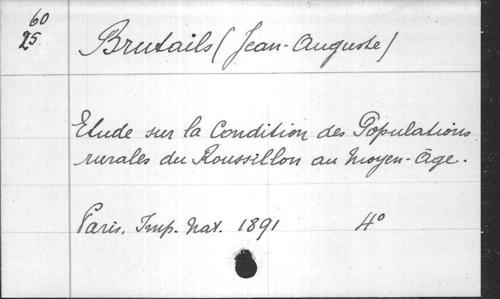 60
25
Brutails (Jean-Auguste)
Etude sur la Condition des Populations
rurales du Roussillon au Moyen-Âge.
Paris, Imp. Nat. 1891 4°